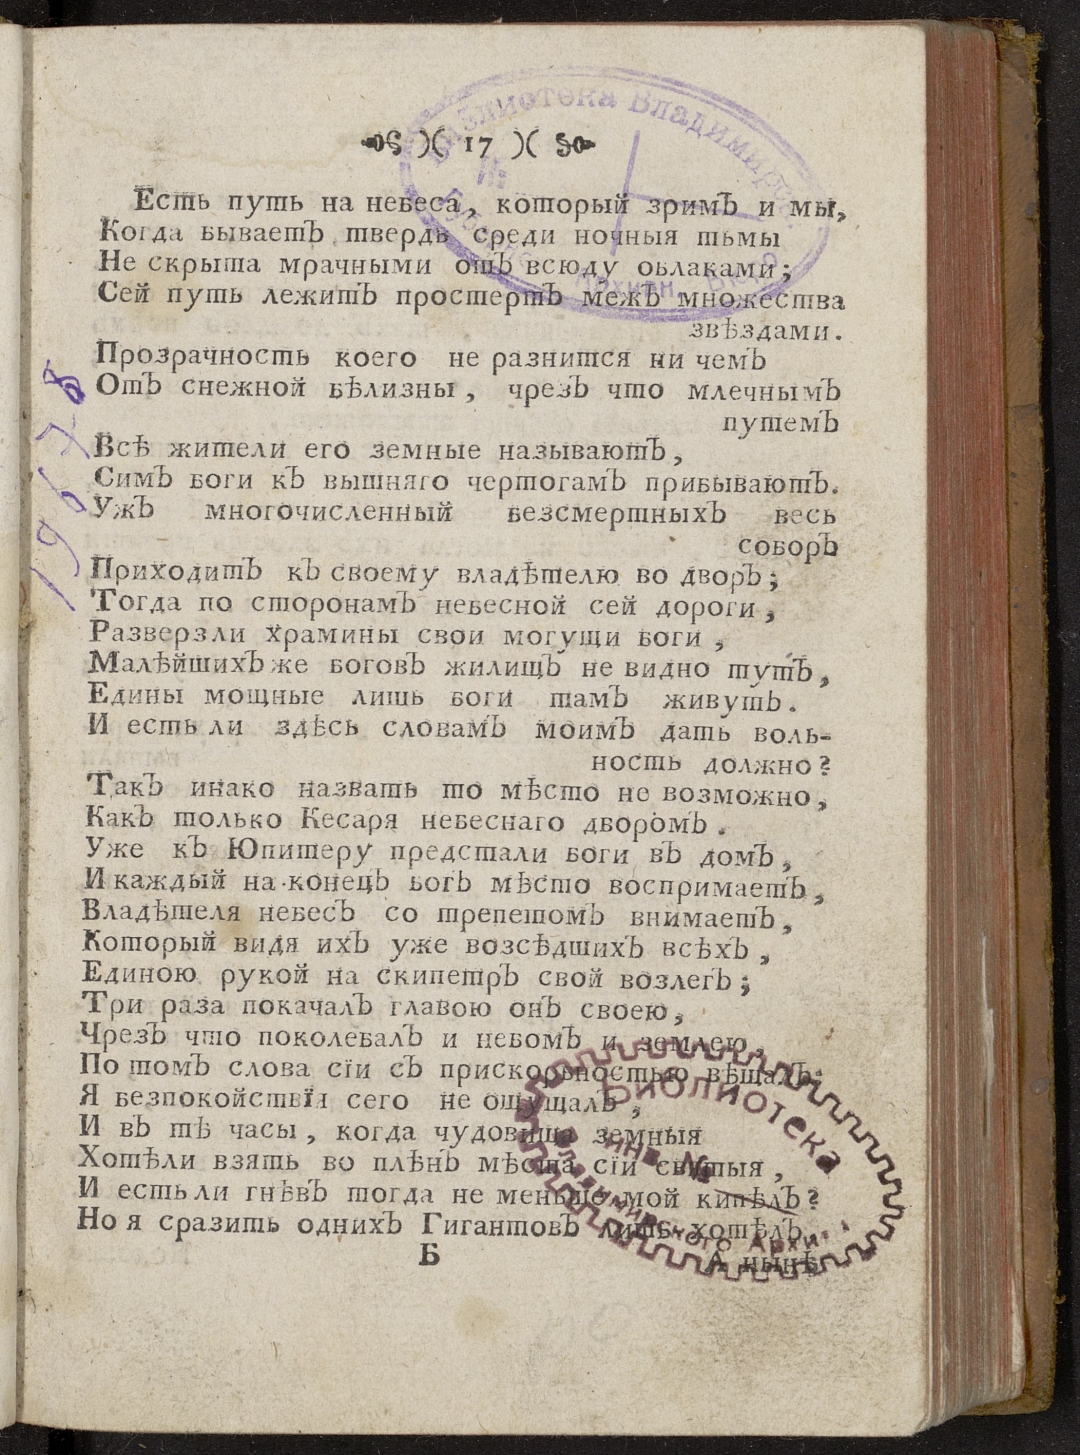 )( 17 )(
Есть путь на небеса, который зримъ и мы,
Когда бываетъ твердь среди ночныя тьмы
Не скрыта мрачными отъ всюду облаками;
Сей путь лежитъ простертъ межъ множества
звѣздами.
Прозрачность коего не разнится ни чемъ
Отъ снежной бѣлизны, чрезъ что млечнымъ
путемъ
Всѣ жители его земные называютъ,
Симъ боги къ вышняго чертогамъ прибываютъ.
Ужъ многочисленный безсмертныхъ весь
соборъ
Приходитъ къ своему владѣтелю во дворъ;
Тогда по сторонамъ небесной сей дороги,
Разверзли храмины свои могущи боги,
Малѣйшихъ же боговъ жилищъ не видно тутъ,
Едины мощные лишь боги тамъ живутъ.
И есть ли здѣсь словамъ моимъ дать воль-
ность должно?
Такъ инако назвать то мѣсто не возможно,
Какъ только Кесаря небеснаго дворомъ.
Уже къ Юпитеру предстали боги въ домъ,
И каждый на конецъ богъ мѣсто воспримаетъ,
Владѣтеля небесъ со трепетомъ внимаетъ,
Который видя ихъ уже возсѣдшихъ всѣхъ,
Единою рукой на скипетръ свой возлегъ;
Три раза покачалъ главою онъ своею,
Чрезъ что поколебалъ и небомъ и землею,
По томъ слова сїи съ прискорбностью вѣщалъ:
Я безпокойствїя сего не ощущалъ,
И въ тѣ часы, когда чудовища земныя
Хотѣли взять во плѣнъ мѣста сїи святыя,
И есть ли гнѣвъ тогда не меньше мой кипѣлъ?
Но я сразить однихъ Гигантовъ лишь хотѣлъ,
Б
А нынѣ
Библиотека Владимирск.
Архива
Библиотека
инв. №
Владимирского Архи
19678